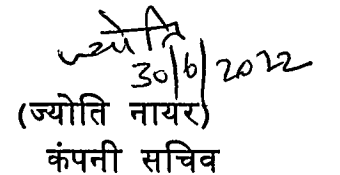 ज्योति
30/6/2022
(ज्योति नायर)
कंपनी सचिव